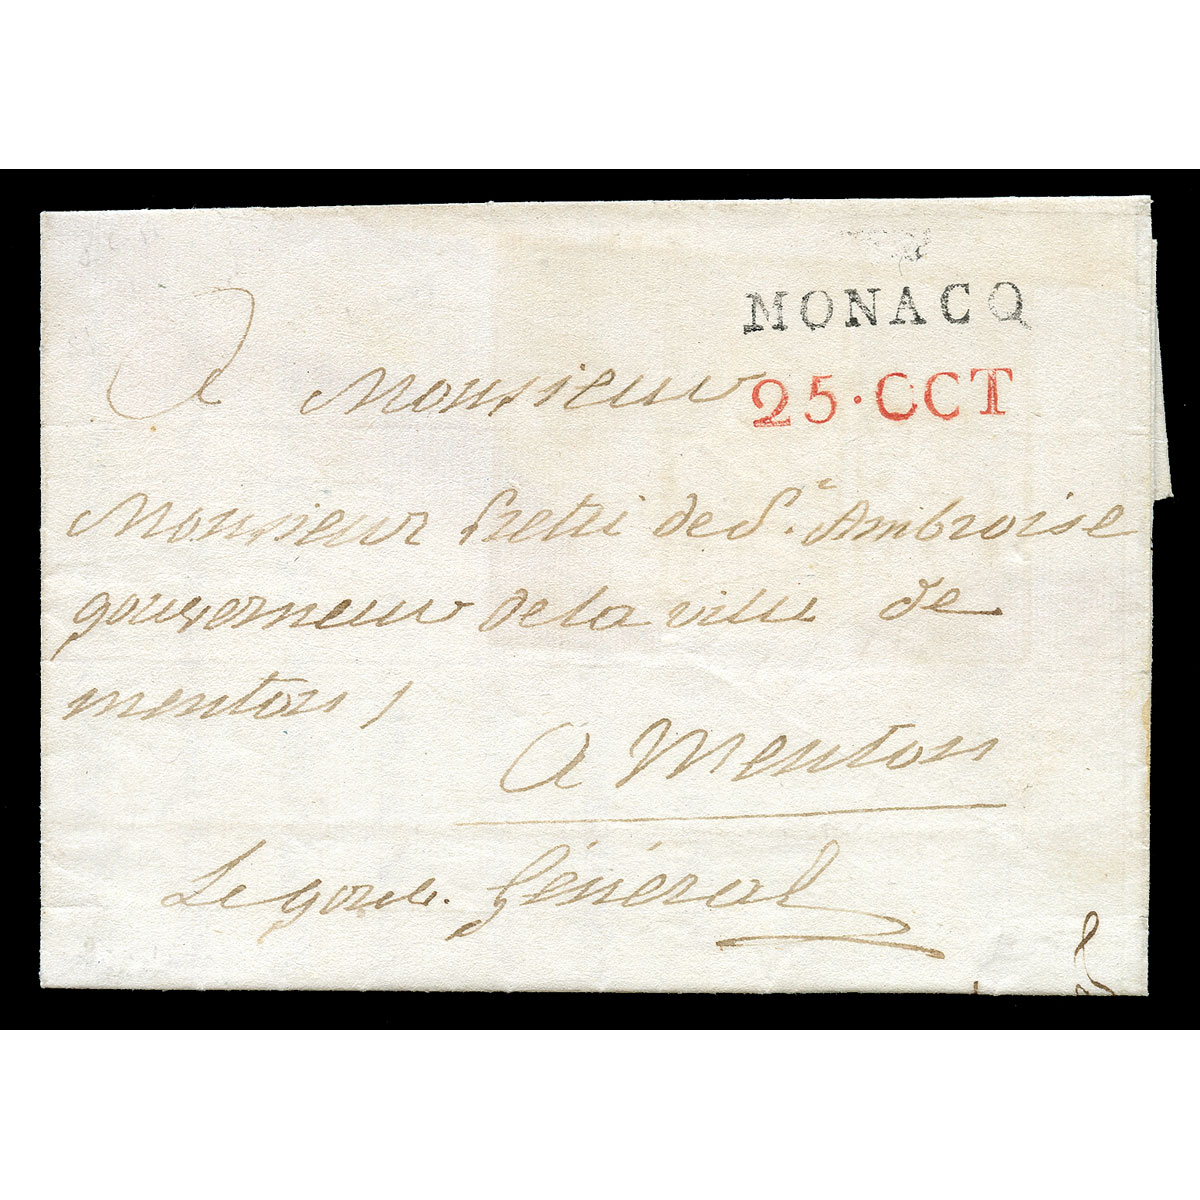 MONACO
25·OCT
A Monsieur
Monsieur Pretti de St. Ambroise
gouverneur de la ville de
menton /
A Menton
Le gouv. Général